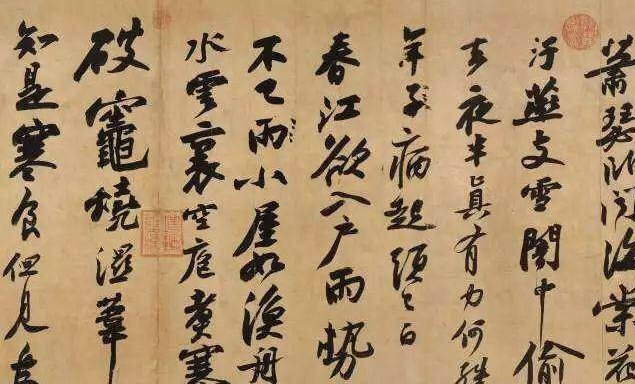 蕭瑟卧聞海棠花
汙燕支雪闇中偷
去夜半真有力何殊
年子病起頭已白
春江欲入戶雨勢
不已雨小屋如漁舟
水雲裏空庖煑寒
破竈燒濕葦
知是寒食但見烏